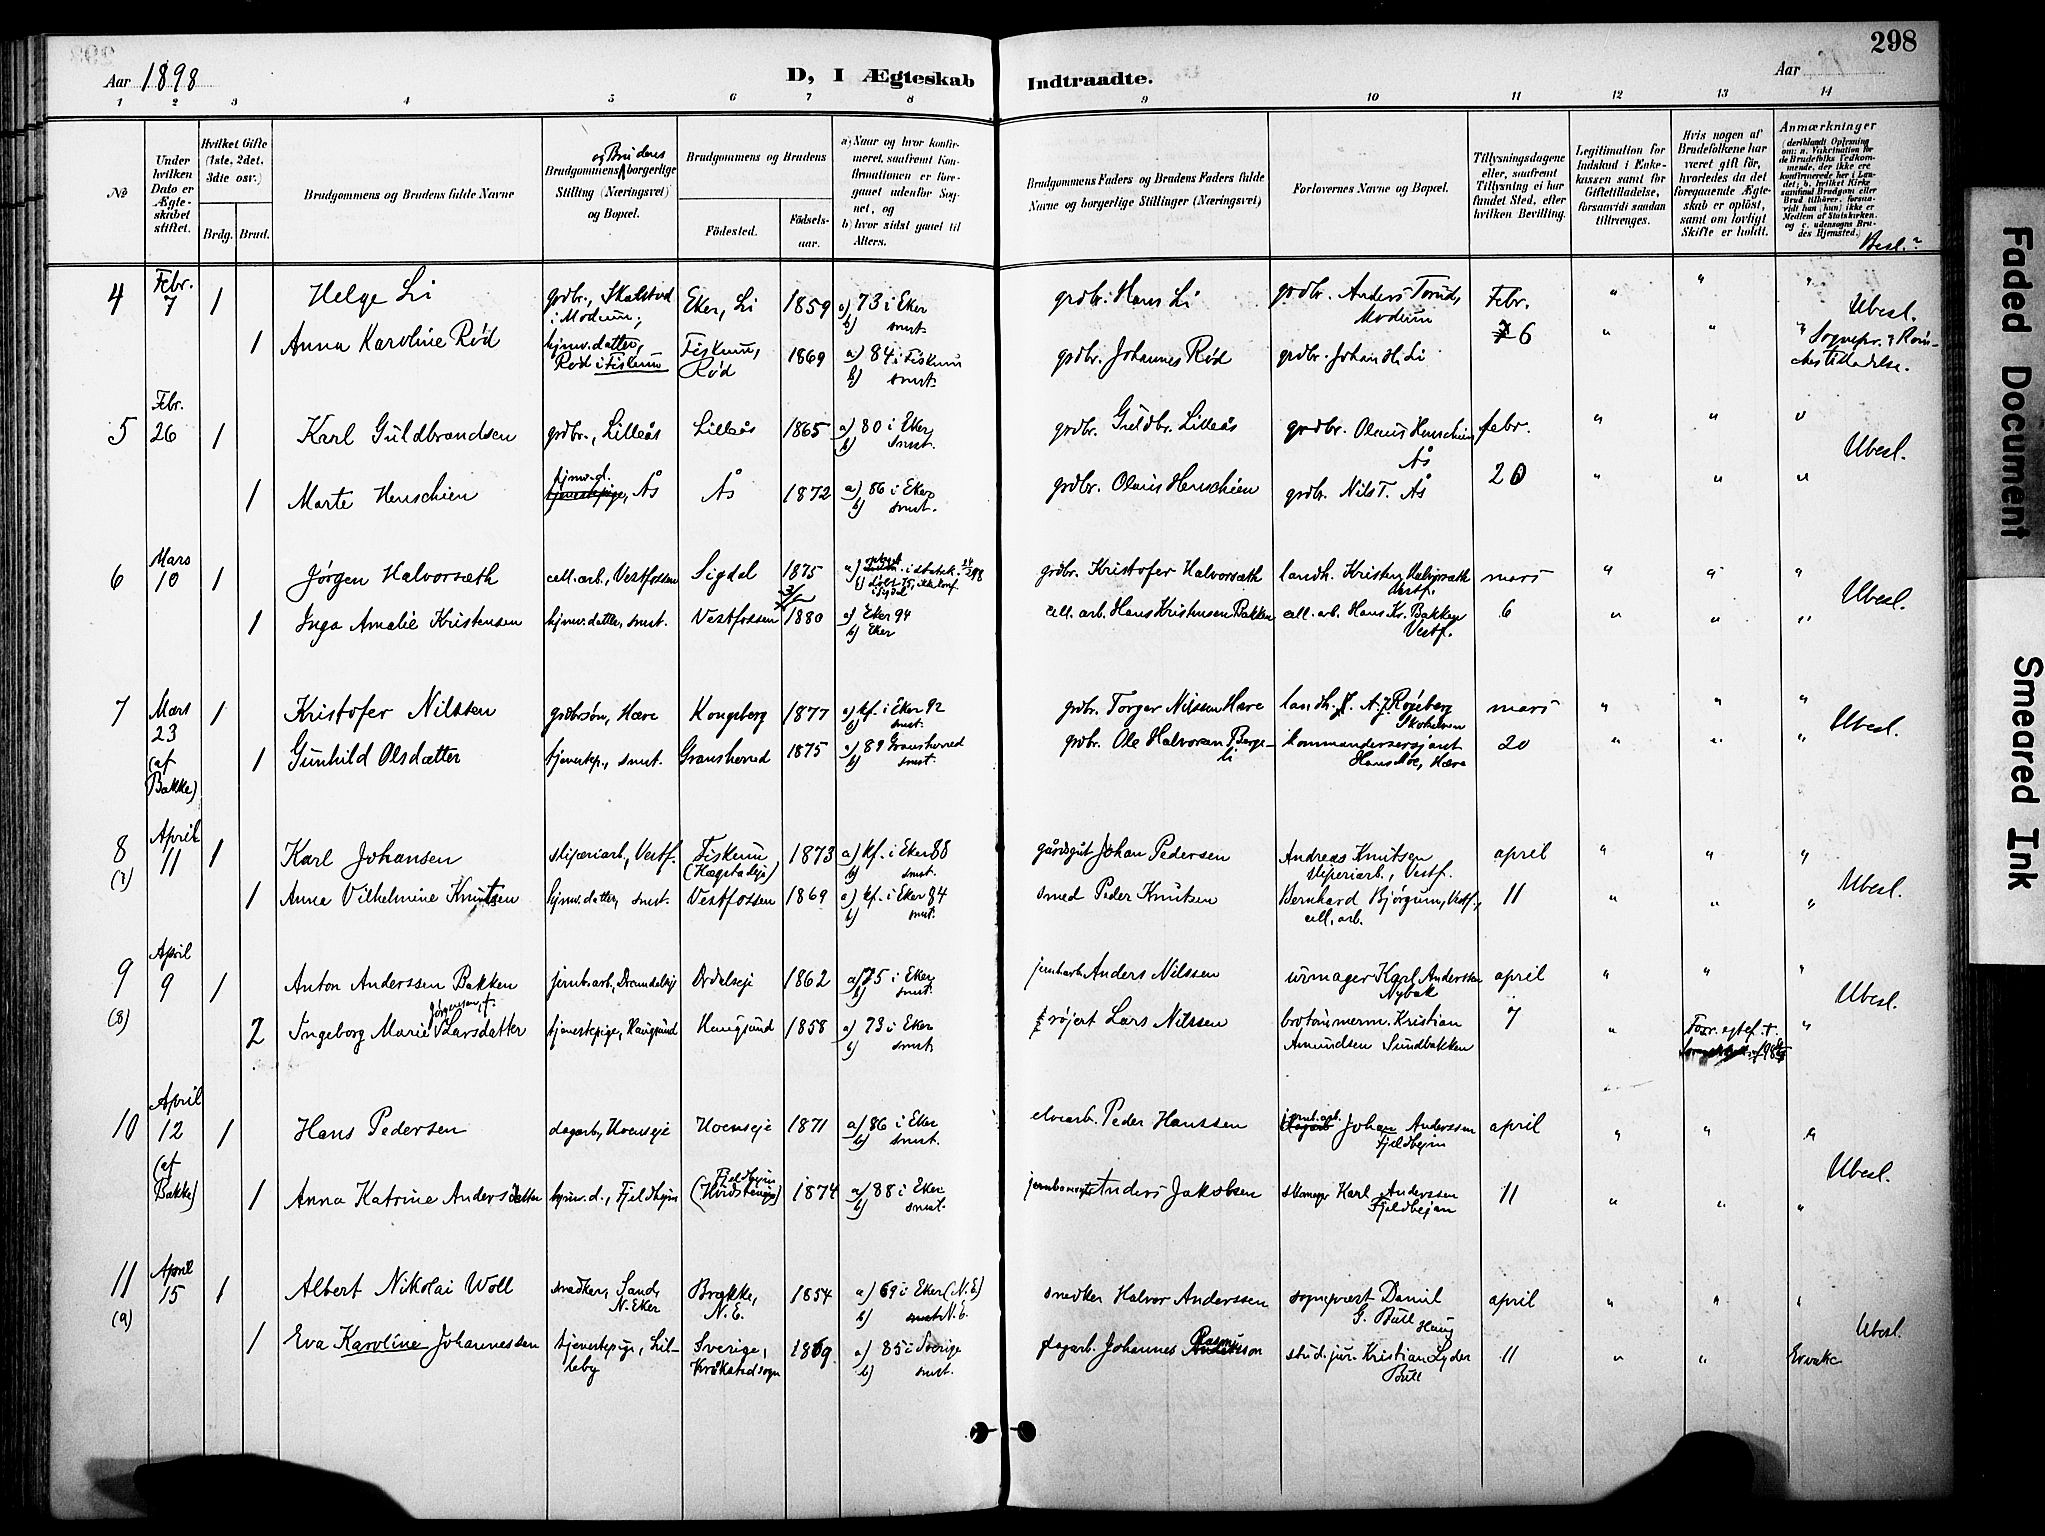 298
Aar 1898
D, I Ægteskab Indtraadte.
Aar
1 2 3 4 5 6 7 8 9 10 11 12 13 14
No
Under hvilken Dato er Ægteskabet stiftet.
Hvilket Gifte (1ste, 2det. 3die osv.)
Brdg. Brud.
Brudgommens og Brudens fulde Navne
Brudgommens og Brudens borgerlige Stilling (Næringsvei) og Bopæl.
Brudgommens og Brudens
Födested. Födselsaar.
a) Naar og hvor konfirmeret, saafremt Konfirmationen er foregaaet udenfor Sognet, og
b) hvor sidst gaaet til Alters.
Brudgommens Faders og Brudens Faders fulde Navne og borgerlige Stillinger (Næringsvei)
Forlovernes Navne og Bopæl.
Tillysningsdagene eller, saafremt Tillysning ei har fundet Sted, efter hvilken Bevilling.
Legitimation for Indskud i Enkekassen samt for Giftetilladelse, forsaavidt saadan tiltrænges.
Hvis nogen af Brudefolkene har været gift för, hvorledes da det foregaaende Ægteskab er oplöst, samt om lovligt Skifte er holdt.
Anmærkninger
Besl.?
4 Febr. 7 1 Helge Li grdbr., Skalstad i Modum; Eker, Li 1859 a) 73 i Eker b) smst. grdbr. Hans Li grdbr. Anders Torud, Modum Febr. " " " Ubesl.
1 Anna Karoline Rød hjmv. datter, Rød i Fiskum Fiskum, Rød 1869 a) 84 i Fiskum b) smst. grdbr. Johannes Rød grdbr. Johan H. Li 6 " " "
5 Febr. 26 1 Karl Guldbrandsen grdbr., Lilleås Lilleås 1865 a) 80 i Eker b) smst. grdbr. Guldbr. Lilleås grdbr. Olaus Henschien Ås febr. " " " Ubesl.
1 Marte Henschien hjmv. d. tjenestepige, Ås Ås 1872 a) 86 i Eker b) smst. grdbr. Olaus Henschien grdbr. Nils T. Ås 20 " " "
6 Mars 10 1 Jørgen Halvorsæth cell. arb., Vestfossen Sigdal 1875 grdbr. Kristofer Halvorsæth landh. Kristen Halvorsæth Vestf. mars " " " Ubesl.
1 Inga Amalie Kristensen hjmv. datter, smst. Vestfossen 1880 a) Eker 94 b) Eker cell. arb. Hans Kristensen Bakken cell. arb. Hans Kr. Bakken Vestf. 6 " " "
7 Mars 23 (af Bakke) 1 Kristofer Nilssen grdbrsøn, Hære Kongsberg 1877 a) kf. i Eker 92 b) smst. grdbr. Torger Nilssen Hære landh. Røieberg mars " " " Ubesl.
1 Gunhild Olsdatter tjenestep., smst. Gransherred 1875 a) 89 Gransherred b) smst. grdbr. Ole Halvorsen Bergeli kommandersersjant Hans Moe, Hære 20 " " "
8 (7) April 11 1 Karl Johansen sliperiarb., Vestf. Fiskum 1873 a) kf. i Eker 88 b) smst. gårdsgut Johan Pedersen Andreas Knutsen sliperiarb., Vestf. april " " " Ubesl.
1 Anna Vilhelmine Knutsen hjmv. datter, smst. Vestfossen 1869 a) kf. i Eker 84 b) smst. smed Peder Knutsen Bernhard Bjørgum, Vestf., cell. arb. 11 " " "
9 (8) April 9 1 Anton Anderssen Bakken jernb. arb. Ordalseje 1862 a) 75 i Eker b) smst. jernbarb. Anders Nilssen urmager Karl Anderssen Nybak april " " " Ubesl.
2 Ingeborg Marie Jørgensen, f. Larsdatter tjenestepige, Haugsund Haugsund 1858 a) 73 i Eker b) smst. Lars Nilssen brotømmerm. Kristian Amundsen Sundbakken 7 " Forr. egtef. † "
10 April 12 (af Bakke) 1 Hans Pedersen dagarb., Hoenseje Hoenseje 1871 a) 86 i Eker b) smst. elvearb. Peder Hanssen jernb. arb. Johan Anderssen Fjeldbyen april " " " Ubesl.
1 Anna Katrine Andersdatter hjmv. d., Fjeldbyen Fjeldbyen 1874 a) 88 i Eker b) smst. Anders Jakobsen skomager Karl Anderssen Fjeldbyen 11 " " "
11 (9) April 15 1 Albert Nikolai Woll snedker, Sand, N. Eker Brække, N. E. 1854 a) 69 i Eker (N. E.) b) N. E. snedker Halvor Anderssen sogneprest Daniel G. Bull Haug april " " " Ubesl.
1 Eva Karoline Johannessen tjenestepige, Lilleby Sverige, 1869 a) 85 i Sverige b) smst. dagarb. Johannes stud. jur. Kristian Lyder Bull 11 " "
Faded Document
Smeared Ink